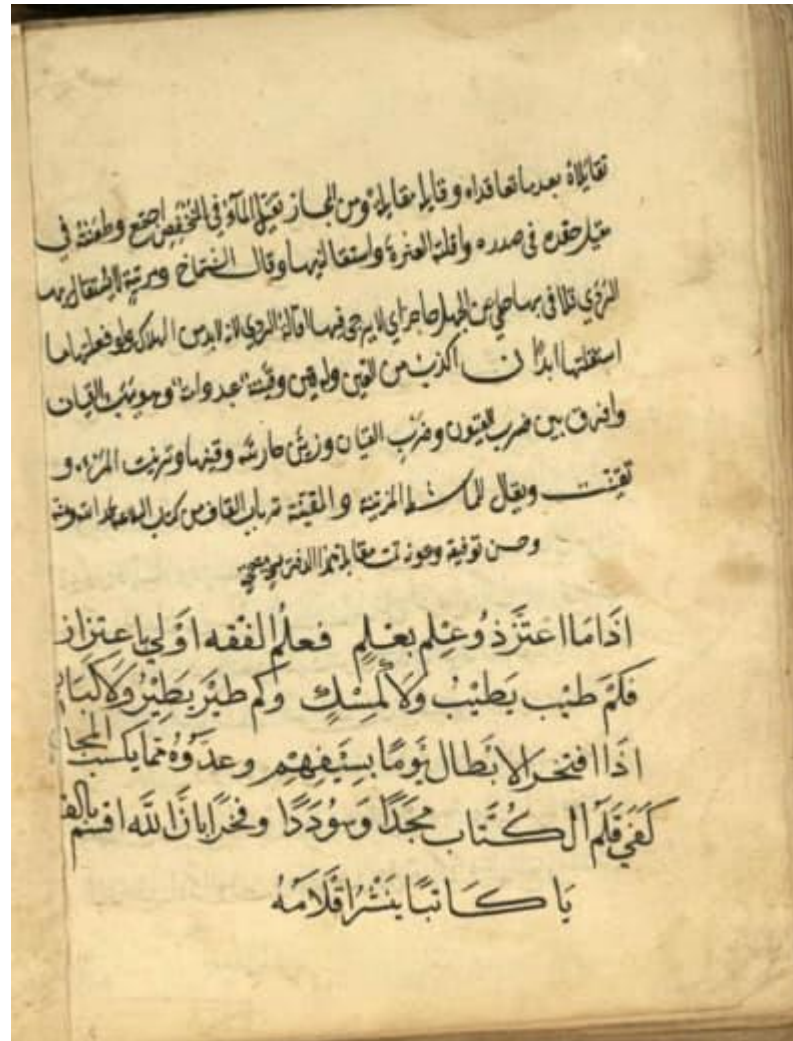 تقايلاه بعدما تعاقداه وقايله مقايلة ومن المجاز تقيل الماء في المنخفض اجتمع وطعنته في
مقيل حقده في صدره واقلته العثرة واستقالنيها وقال الشماخ ومرتبة لا يستقال بها
الردى تلافى بها حلمي عن الجهل حاجز اي لا يرجى فيها اقالة الردى لانه لابد من الهلاك ولو فعلتها ما
استقلتها ابدًا ن اكذب من القين وله قين وقينة عبد وامة وهو يبيع القيان
وافرق بين ضرب القيون وضرب القيان وزين جارته وقينها وتزينت المرءة و
تقينت ويقال للماشطة المزينة والمقينة تم باب القاف من كتاب بحمد الله ومنه
وحسن توفيقه وعونه تمت مقابلة هذا الدفتر
اذا ما اعتز ذو علم بعلم فعلم الفقه اولى باعتزاز
فكم طيب يطيب ولا كمسك وكم طير يطير ولا كباز
اذا افتخر الابطال يومًا بسيفهم وعدّوه مما يكسب المجد
كفى قلم الكتاب مجدًا وسوددًا وفخرًا بان الله اقسم بالقلم
يا كاتبًا ينشر اقلامه